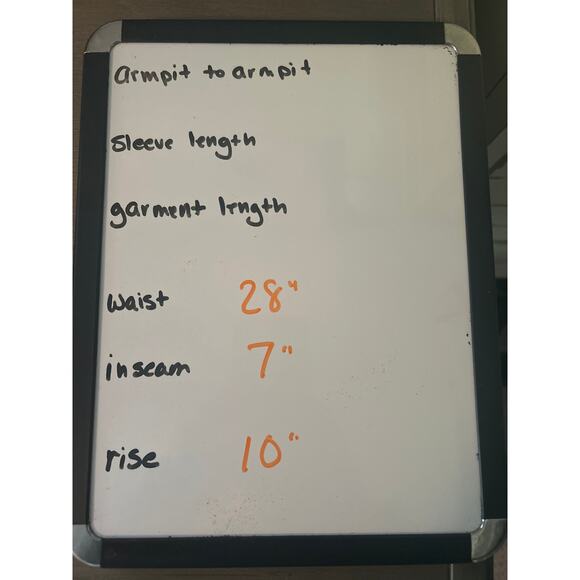 armpit to armpit
Sleeve length
garment length
Waist 28"
inseam 7"
rise 10"